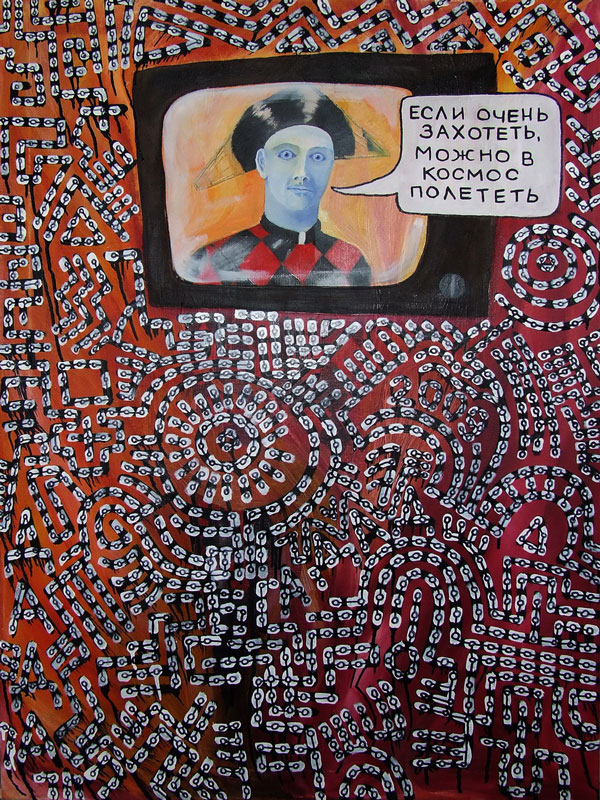 ЕСЛИ ОЧЕНЬ
ЗАХОТЕТЬ,
МОЖНО В
КОСМОС
ПОЛЕТЕТЬ